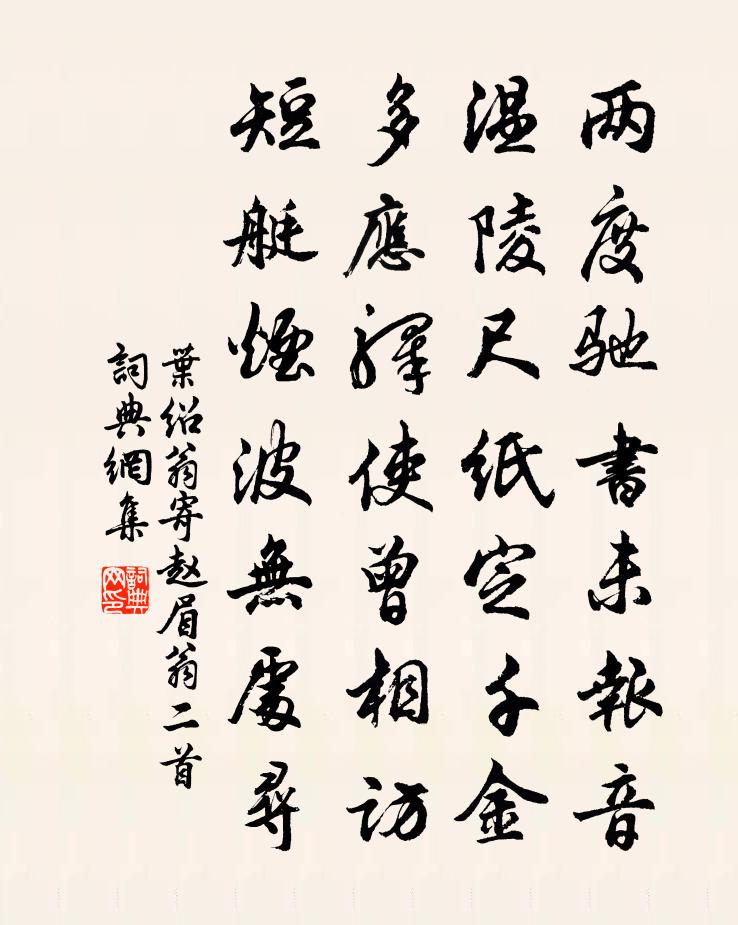 两度驰書未報音
温陵尺紙定千金
多應驛使曾相訪
短艇煙波無處尋
葉绍翁寄赵眉翁二首
詞典網集
詞典网印